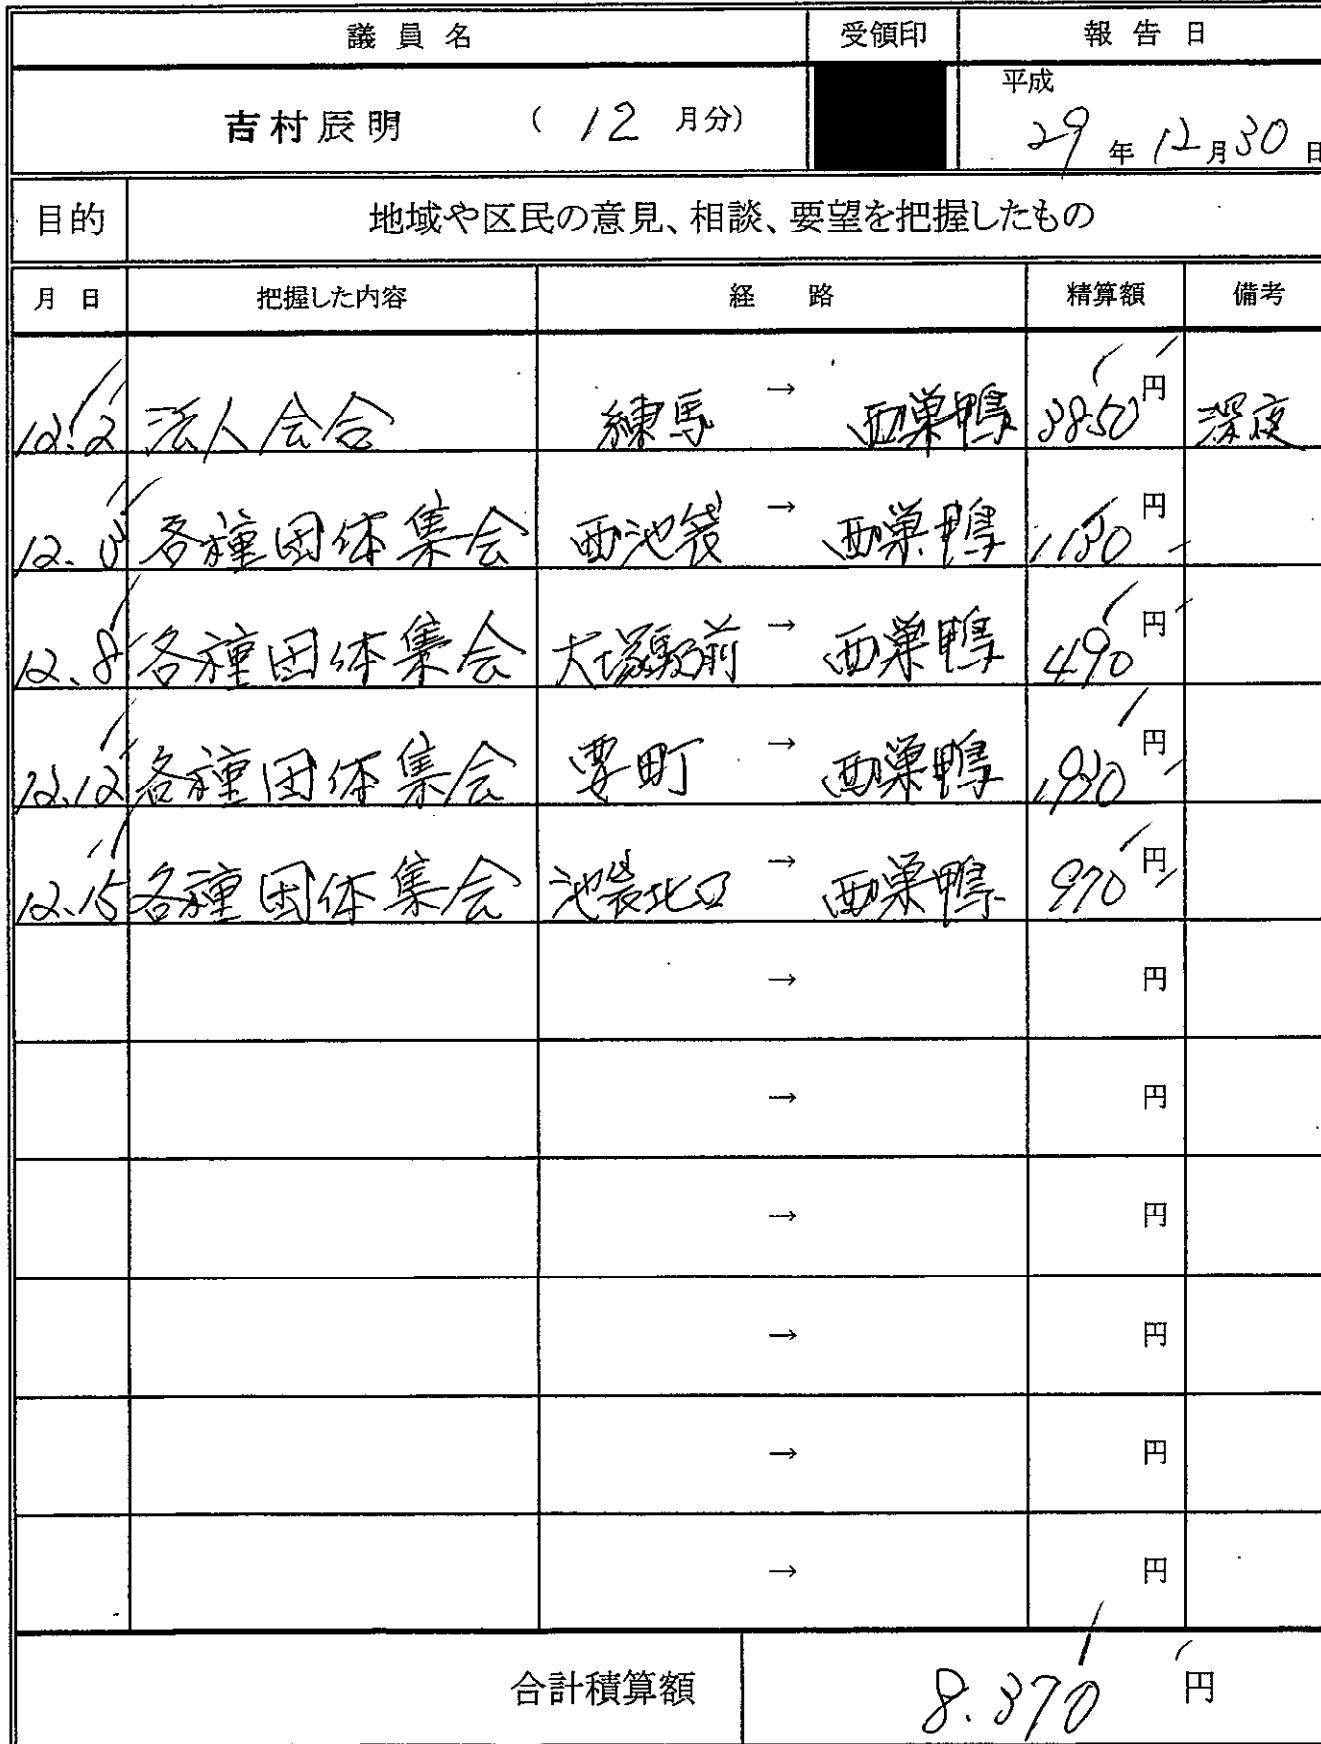 議員名 受領印 報告日
吉村辰明 ( 12 月分) 平成 29 年 12 月 30 日
目的 地域や区民の意見、相談、要望を把握したもの
月日 把握した内容 経路 精算額 備考
12.2 法人会合 練馬 → 西巣鴨 3850円 深夜
各種団体集会 西池袋 → 西巣鴨 1,130円
12.8 各種団体集会 大塚駅前 → 西巣鴨 490円
12.12 各種団体集会 要町 → 西巣鴨 1,930円
12.15 各種団体集会 池袋北口 → 西巣鴨 970円
→ 円
→ 円
→ 円
→ 円
→ 円
→ 円
合計積算額 8.370 円